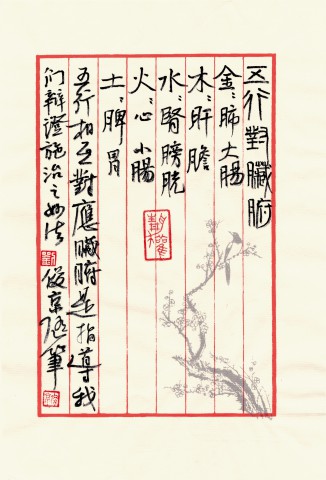 五行對臟腑
金：肺大腸
木：肝膽
水：腎膀胱
火：心小腸
土：脾胃
五行相互對應臟腑是指導我
们辯證施治之妙法
俊京隨筆